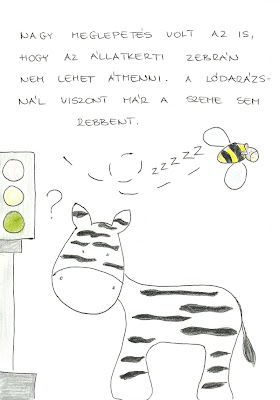 NAGY MEGLEPETÉS VOLT AZ IS,
HOGY AZ ÁLLATKERTI ZEBRÁN
NEM LEHET ÁTMENNI. A LÓDARÁZS-
NÁL VISZONT MÁR A SZEME SEM
REBBENT.
ZZZZZ
?